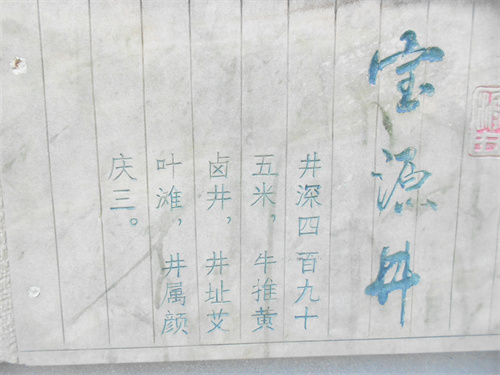 宝源井
井深四百九十
五米，牛推黄
卤井，井址艾
叶滩，井属颜
庆三。